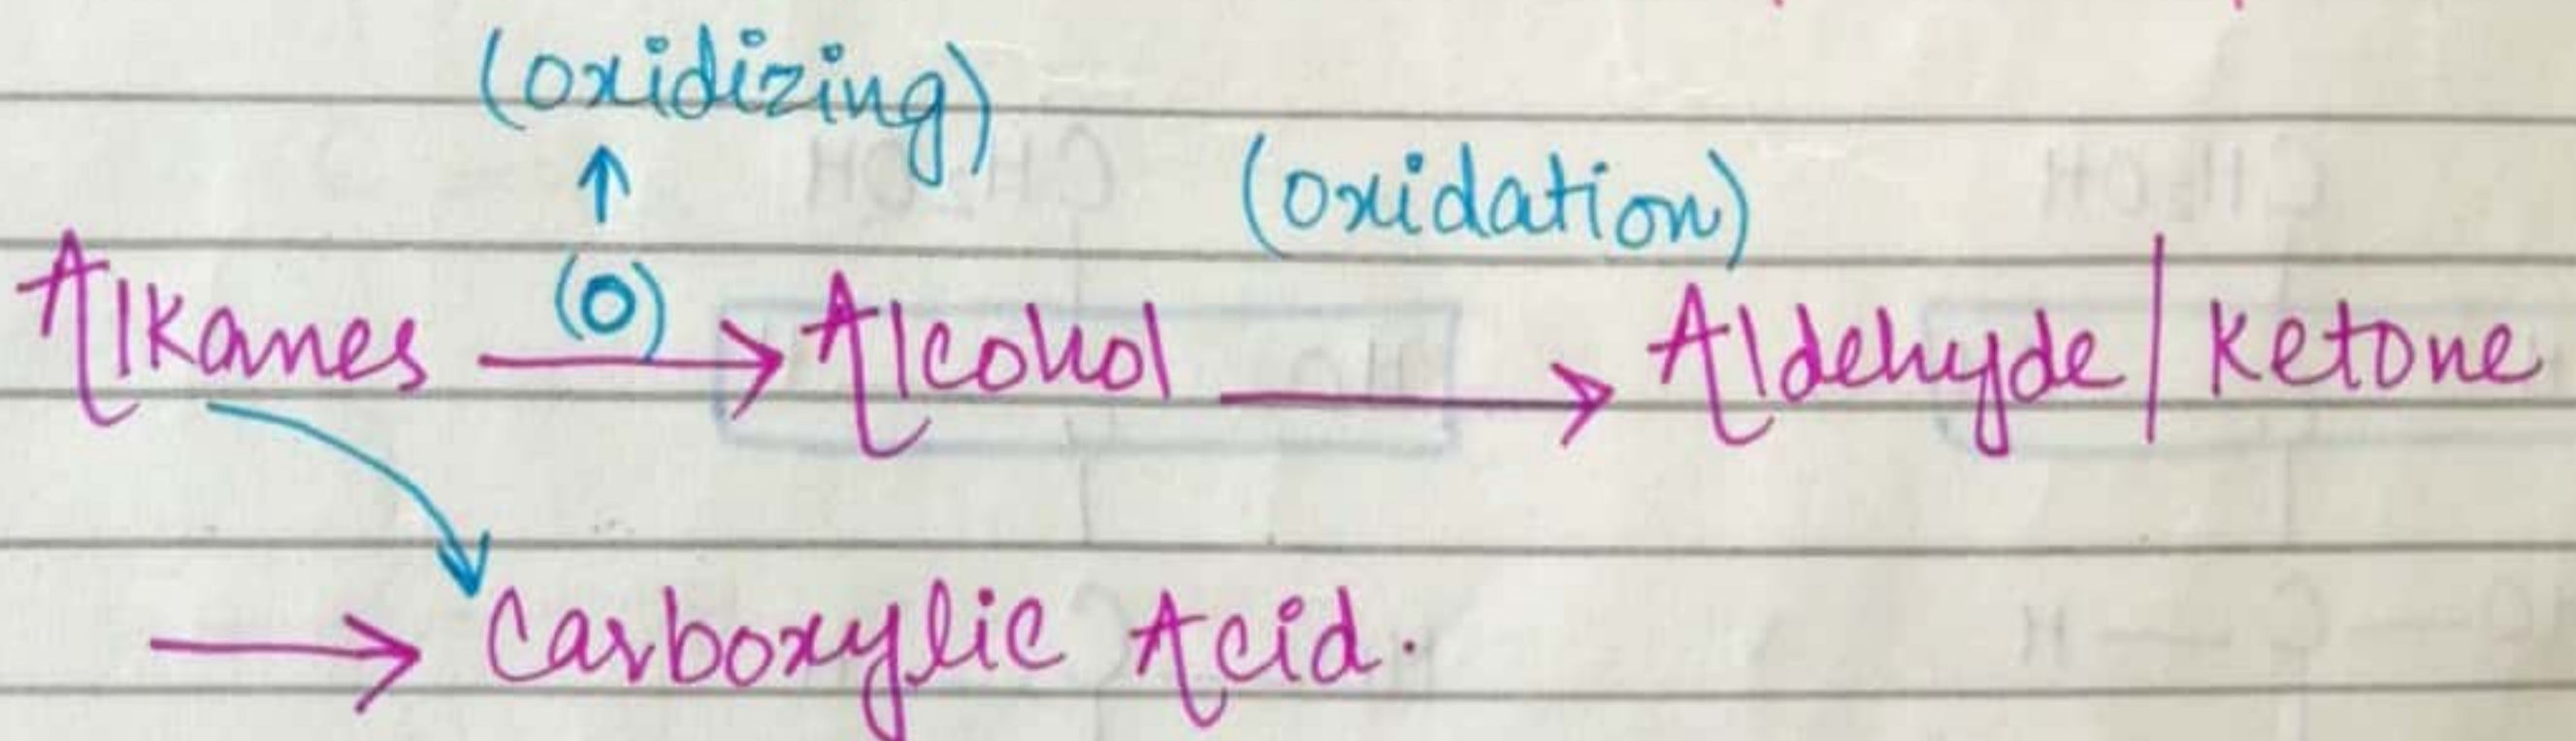 (oxidizing)
↑
(O) (oxidation)
Alkanes → Alcohol → Aldehyde | Ketone
→ Carboxylic Acid.